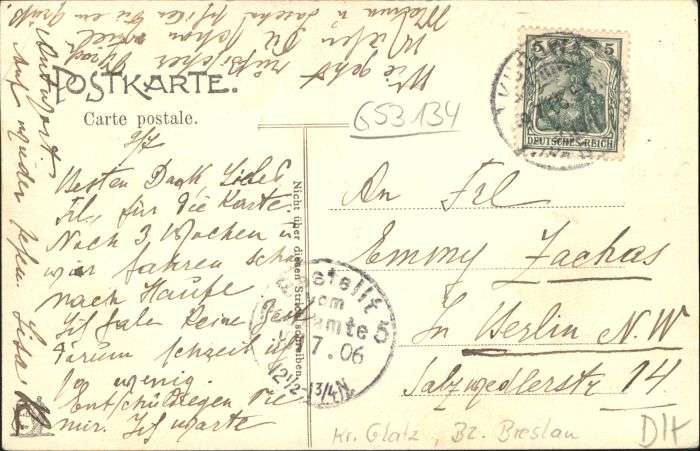 POSTKARTE.
Carte postale.
653134
9/7
Besten Dank Liebes
Frl. für die Karte.
Noch 3 Wochen u
wir fahren schon
nach Hause
Ich habe Keine
Darum schreib ich
so wenig.
Entschuldigen Sie
mir. Ich warte
Antwort
Auf wieder sehen Lisa
Wie geht
Wissen Sie schon
Nicht über diesen Strich schreiben.
5 5
DEUTSCHES REICH
An Frl
Emmy Zachas
In Berlin N.W
Salzwedlerstr 14
Bestellt
vom
Postamte 5
7.06
12½-1¾N.
Kr. Glatz, Bz. Breslau
DIt